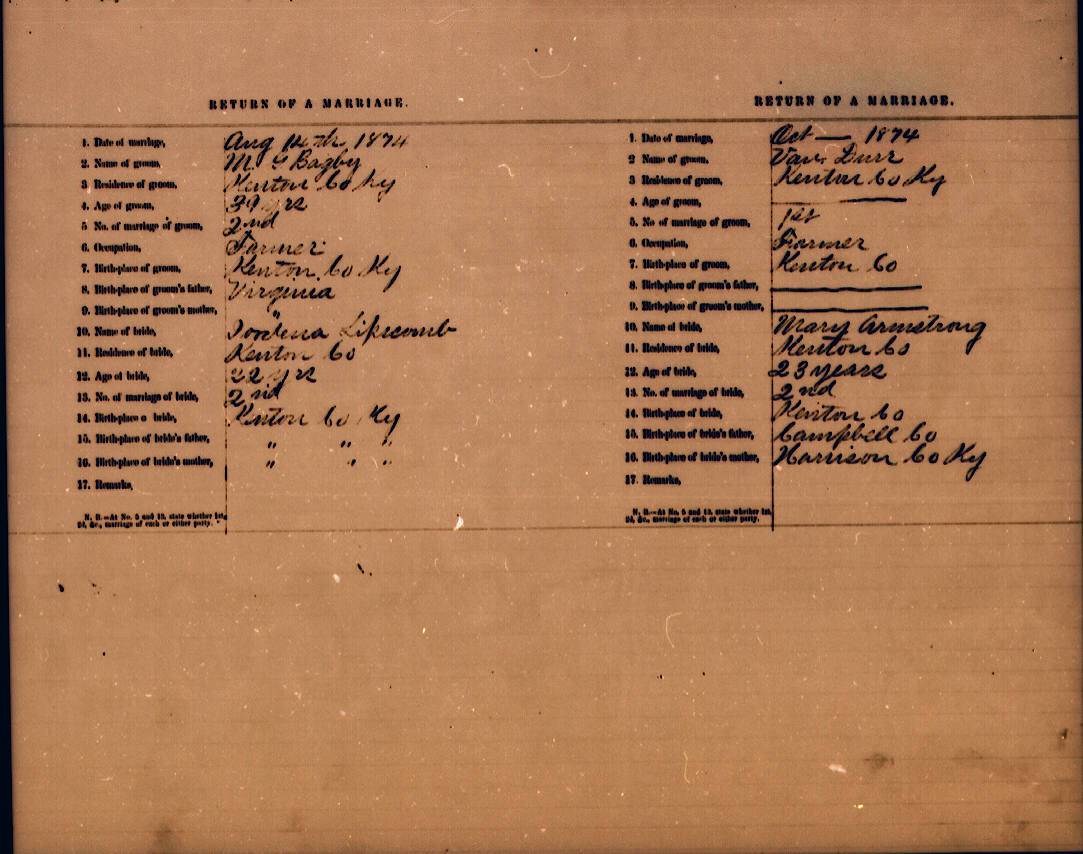 RETURN OF A MARRIAGE.
1. Date of marriage, Aug 14th 1874
2. Name of groom, M G Bagby
3 Residence of groom, Kenton Co Ky
4. Age of groom, yrs
5 No. of marriage of groom, 2nd
6. Occupation, Farmer
7. Birth-place of groom, Kenton Co Ky
8. Birth-place of groom's father, Virginia
9. Birth-place of groom's mother, "
10. Name of bride, Lipscomb
11. Residence of bride, Kenton Co
12. Age of bride, 22 yrs
13. No. of marriage of bride, 2nd
14. Birth-place o bride, Kenton Co Ky
15. Birth-place of bride's father, " " "
16. Birth-place of bride's mother, " " "
17. Remarks,
N. B.—At No. 5 and 13, state whether 1st,
2d, &c., marriage of each or either party.
RETURN OF A MARRIAGE.
1. Date of marriage, Oct — 1874
2 Name of groom, Van Durr
3 Residence of groom, Kenton Co Ky
4. Age of groom, ——
5. No. of marriage of groom, 1st
6. Occupation, Farmer
7. Birth-place of groom, Kenton Co
8. Birth-place of groom's father, ——
9. Birth-place of groom's mother, ——
10. Name of bride, Mary Armstrong
11. Residence of bride, Kenton Co
12. Age of bride, 23 years
13. No. of marriage of bride, 2nd
14. Birth-place of bride, Kenton Co
15. Birth-place of bride's father, Campbell Co
16. Birth-place of bride's mother, Harrison Co Ky
17. Remarks,
N. B.—At No. 5 and 13, state whether 1st,
2d, &c., marriage of each or either party.